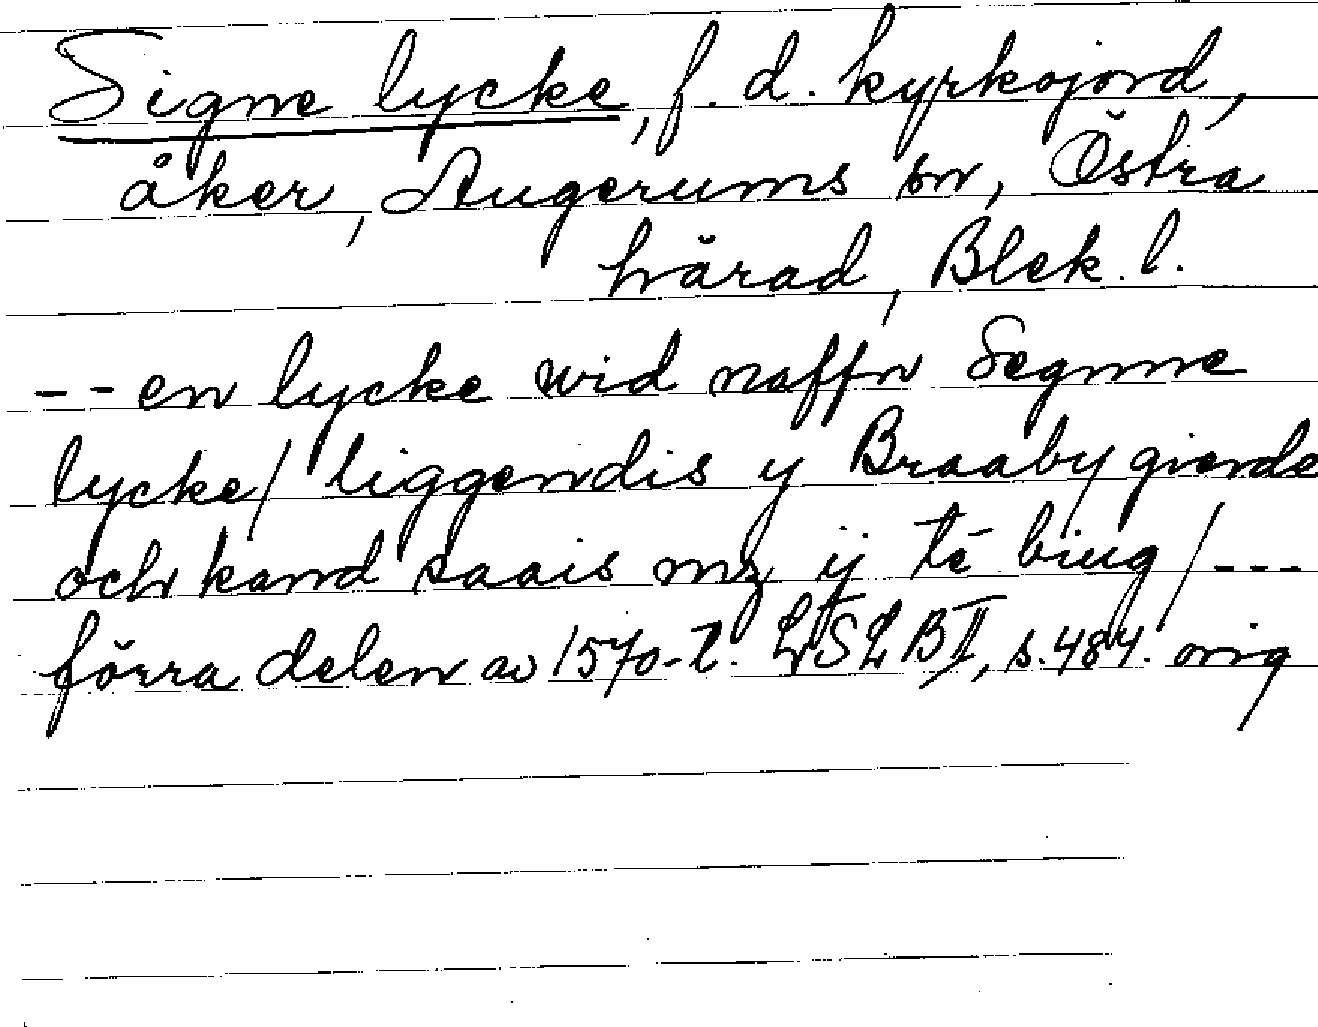 Signe lycke, f. d. kyrkojord,
åker, Augerums sn, Östra
härad, Blek. l.
-- en lycke wid naffn Segnne
lycke/ liggendis y Braaby gierde
och kand saais mz ij tē biug/---
förra delen av 1570-t. LSLB II, s. 484. orig